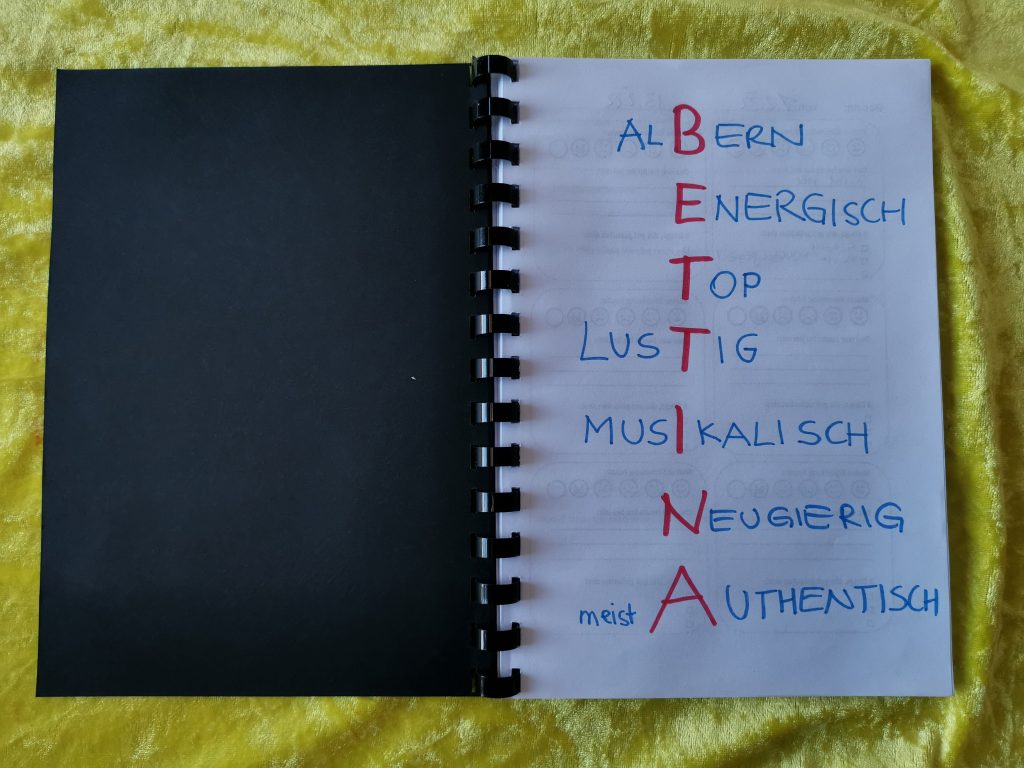 ALBERN
ENERGISCH
TOP
LUSTIG
MUSIKALISCH
NEUGIERIG
meist AUTHENTISCH